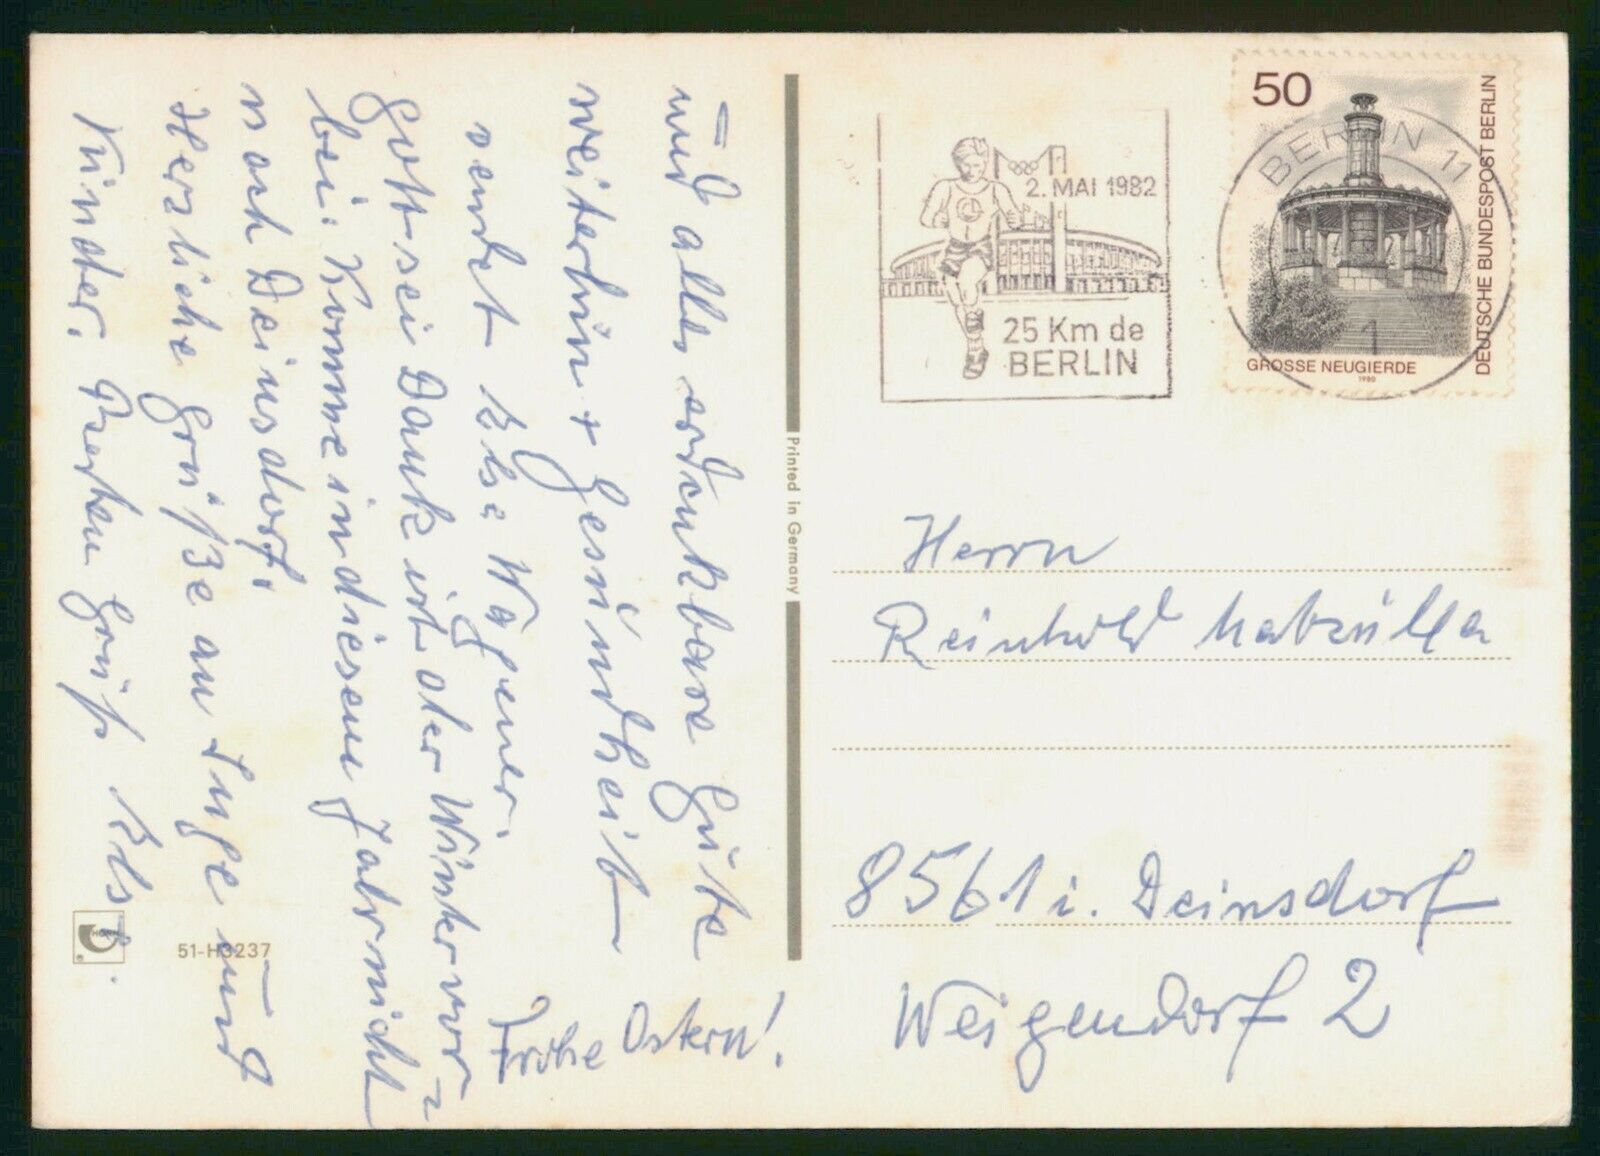 und alles erdenkbare Gute
weiterhin + Gesundheit
sendet Else Wagener.
Gott sei Dank ist der Winter vor=
bei. Komme in diesem Jahr nicht
nach Deinsdorf.
Herzliche Grüße an Inge und
Kinder. Gruß
Frohe Ostern!
51-H3237
Printed in Germany
2. MAI 1982
25 Km de
BERLIN
BERLIN 11
1
50
DEUTSCHE BUNDESPOST BERLIN
GROSSE NEUGIERDE
1980
Herrn
Reinhold
8561 i. Deinsdorf
Weigendorf 2